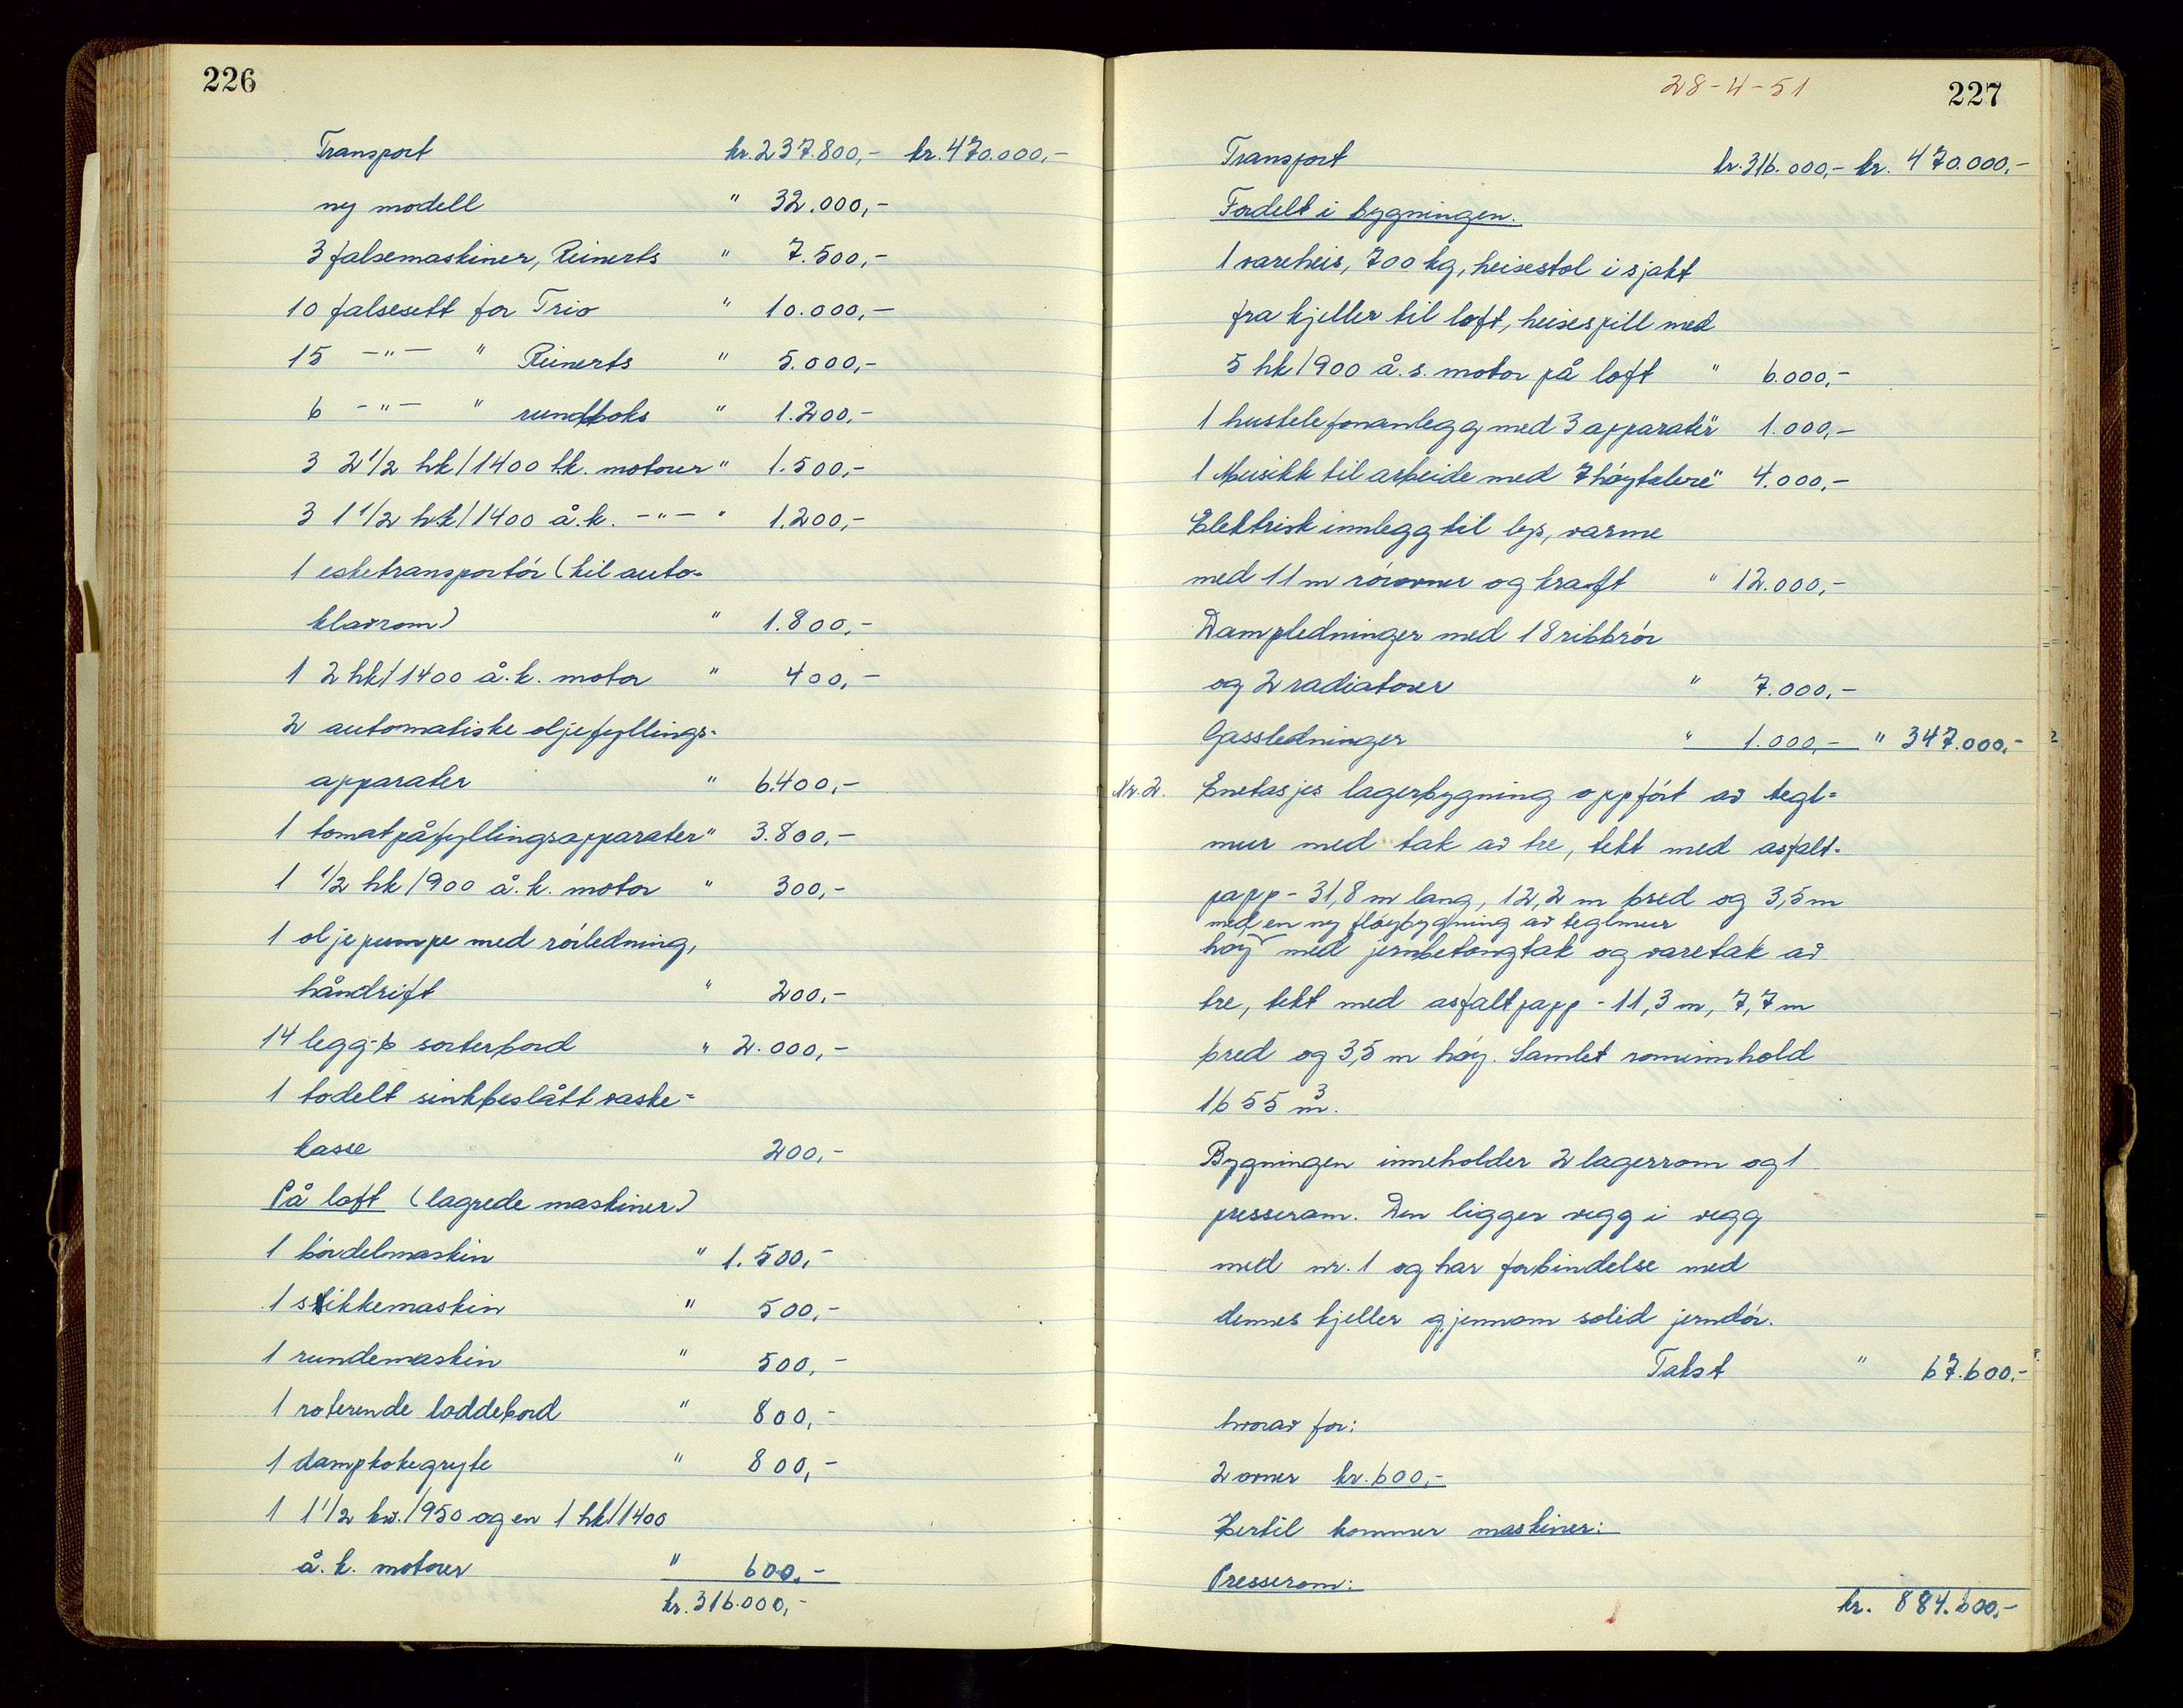 226
Transport kr. 237.800,- kr. 470.000,-
ny modell " 32.000,-
3 falsemaskiner, Reinerts " 7.500,-
10 falsesett for Trio " 10.000,-
15 -"- " Reinerts " 5.000,-
6 -"- " rundboks " 1.200,-
3 2 1/2 hk/1400 å.k. motorer " 1.500,-
3 1 1/2 hk/1400 å.k. -"- " 1.200,-
1 esketransportör (til auto-
klavrom) " 1.800,-
1 2 hk/1400 å.k. motor " 400,-
2 automatiske oljefyllings-
apparater " 6.400,-
1 tomatpåfyllingsapparater " 3.800,-
1 1/2 hk/900 å.k. motor " 300,-
1 oljepumpe med rórledning,
håndrift " 200,-
14 legg- & sorterbord " 2.000,-
1 todelt sinkbeslått vaske-
kasse 200,-
På loft (lagrede maskiner)
1 bördelmaskin " 1.500,-
1 stikkemaskin " 500,-
1 rundemaskin " 500,-
1 roterende loddebord " 800,-
1 dampkokegryte " 800,-
1 1 1/2 kw./950 og en 1 hk/1400
å.k. motorer " 600,-
kr. 316.000,-
28-4-51
227
Transport kr. 316.000,- kr. 470.000,-
Fordelt i bygningen.
1 vareheis, 700 kg, heisestol i sjakt
fra kjeller til loft, heisespill med
5 hk/900 å.s. motor på loft " 6.000,-
1 hustelefonanlegg med 3 apparater " 1.000,-
1 Musikk til arbeide med 7 hóytalere " 4.000,-
Elektrisk innlegg til lys, varme
med 11 m rórovner og kraft " 12.000,-
Dampledninger med 18 ribbrór
og 2 radiatorer " 7.000,-
Gassledninger " 1.000,- " 347.000,-
Nr. 2. Enetasjes lagerbygning oppfórt av tegl-
mur med tak av tre, tekt med asfalt-
papp - 31,8 m lang, 12,2 m bred og 3,5 m
med en ny flóybygning av teglmur
hóy med jernbetongtak og varetak av
tre, tekt med asfaltpapp - 11,3 m, 7,7 m
bred og 3,5 m hóy. Samlet rominnhold
1655 m³.
Bygningen inneholder 2 lagerrom og 1
presserom. Den ligger vegg i vegg
med nr. 1 og har forbindelse med
dennes kjeller gjennom solid jerndór.
Takst " 67.600,-
hvorav for:
2 ovner kr. 600,-
Hertil kommer maskiner:
Presserom:
kr. 884.600,-